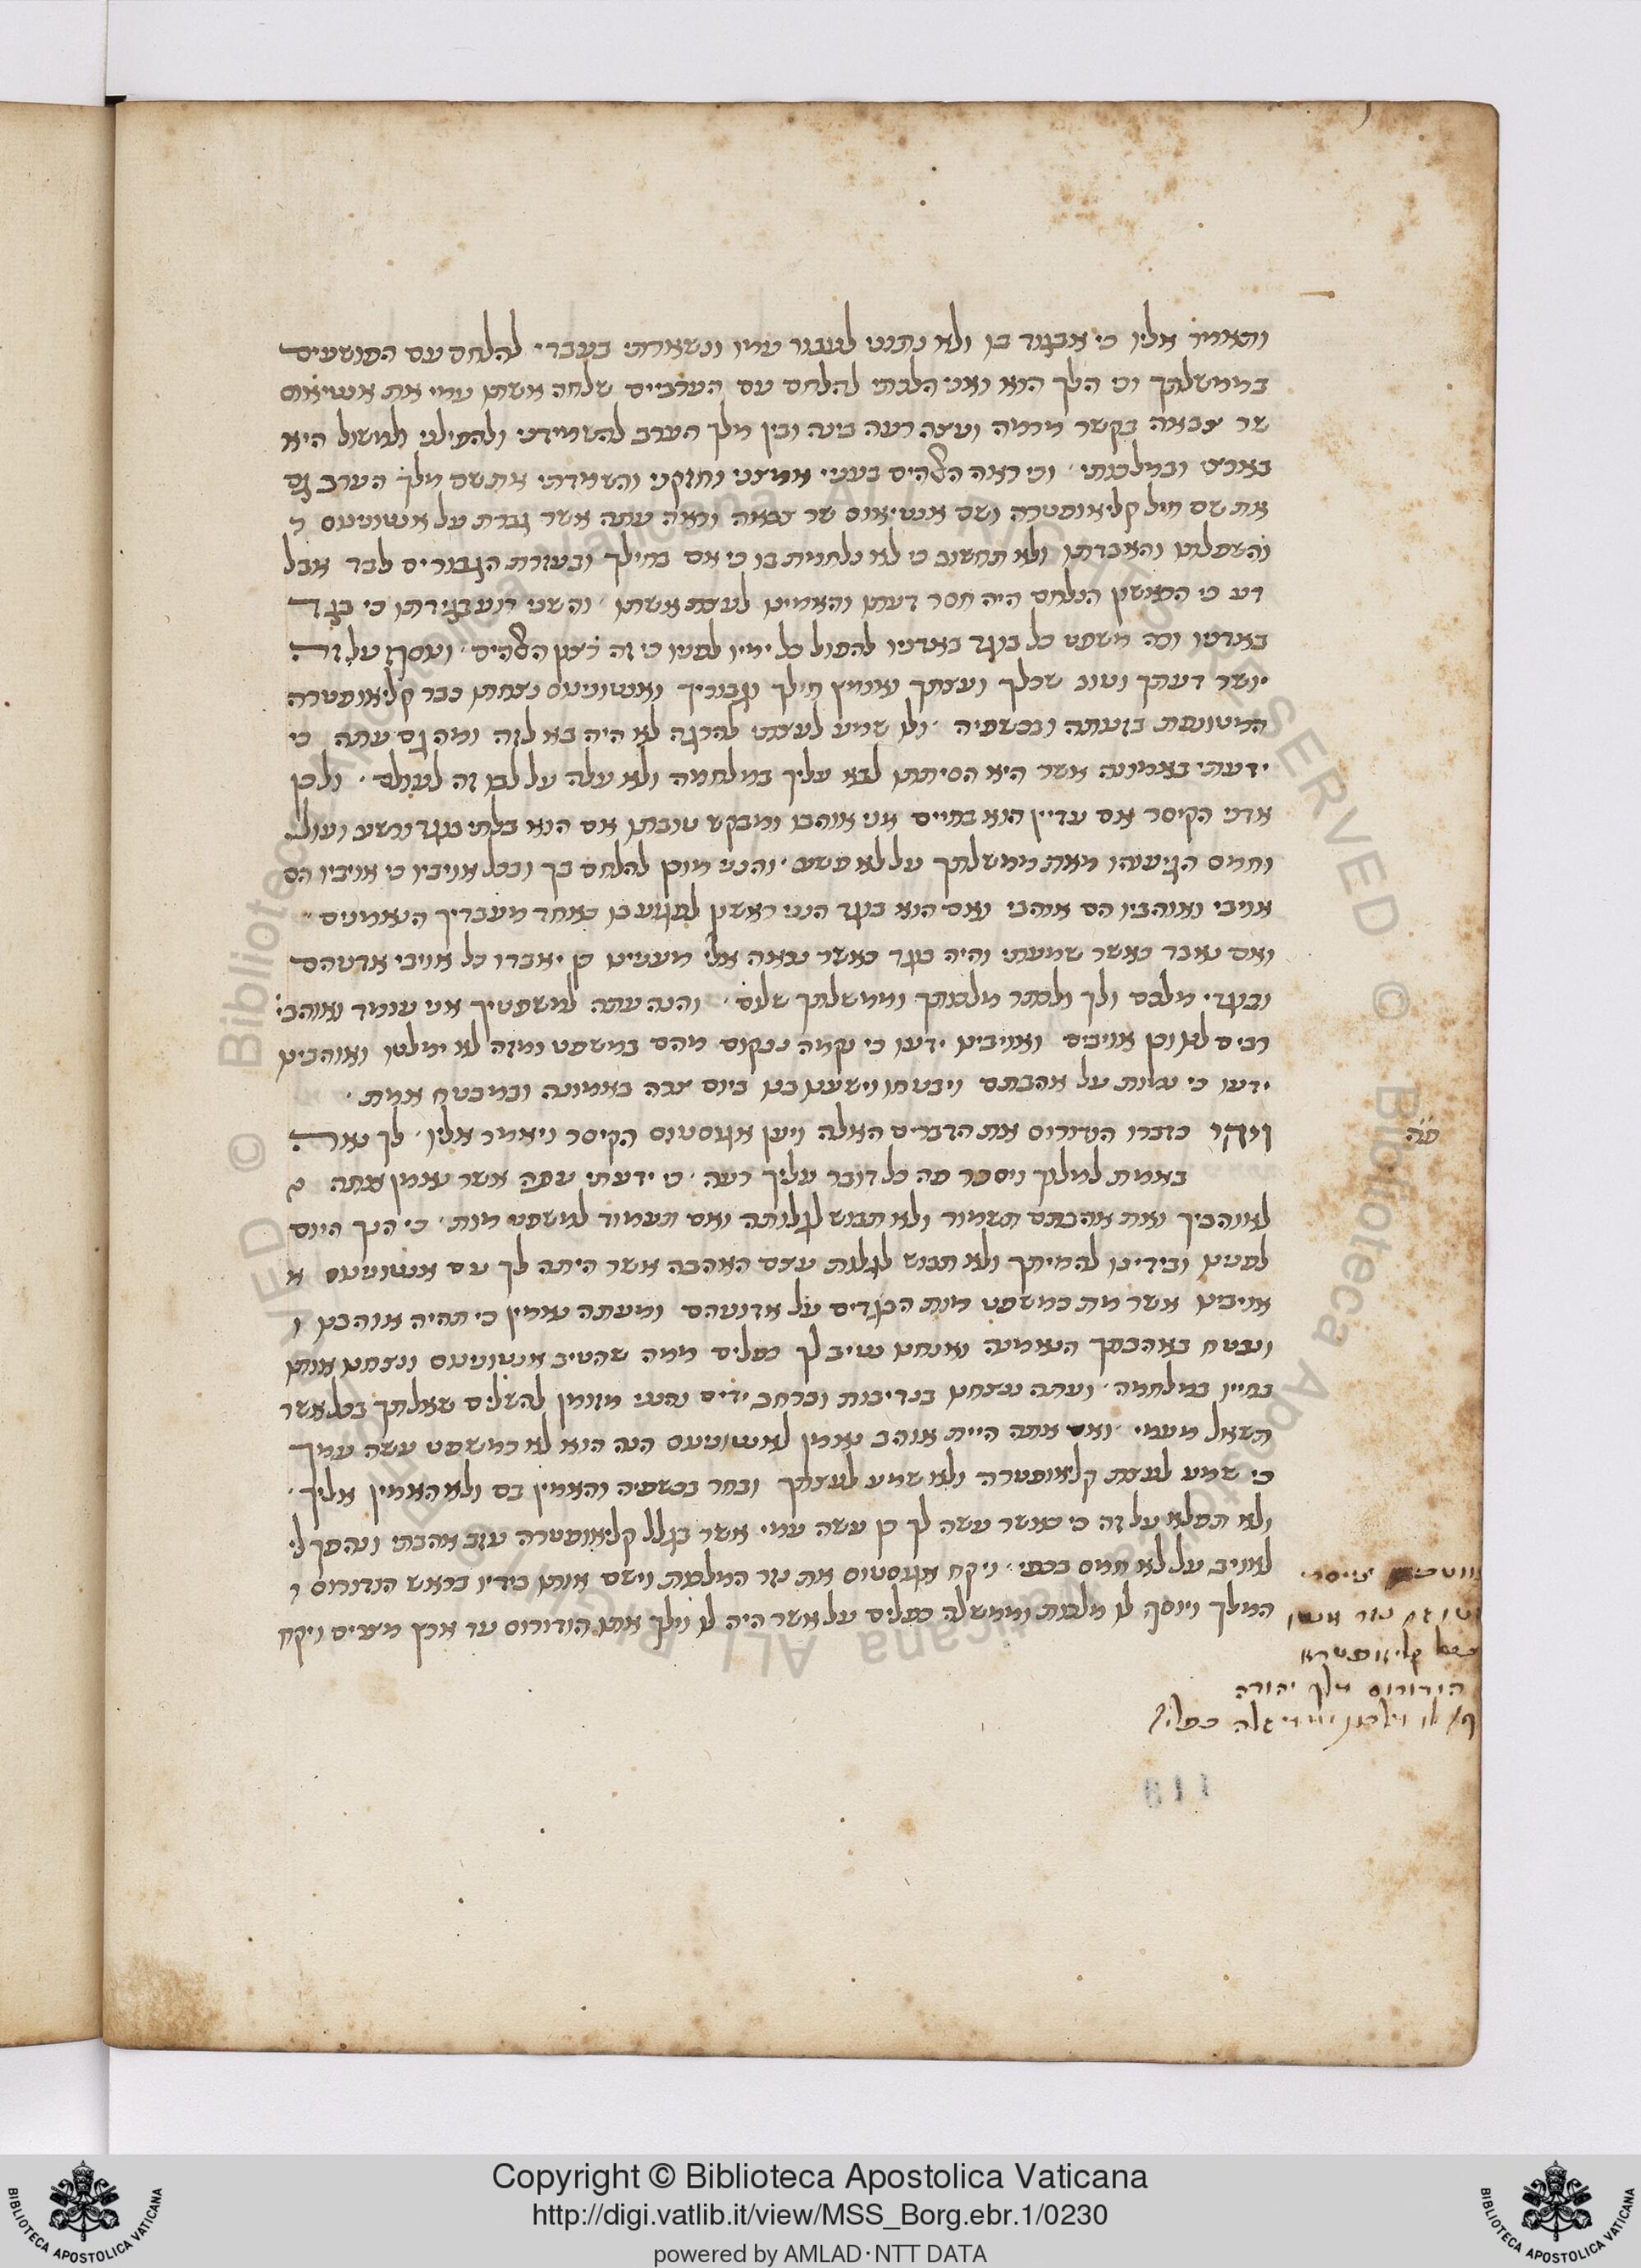 ותאמר אליו כי אבגוד בו ולא נתנני לעבור עמו ונשארתי בעברי להלחם עם הפושעים
בממשלתך וכי הלך הוא ואני הלכתי להלחם עם הערביים שלחה אשתו עמי את אנשיאוס
שר צבאה בקשר מרמה ועצה רעה בינה ובין מלך הערב להשמידני ולהפילני למשול היא
בארצי ובמלכותי וכי ראה האלהים בעניי אמצני וחזקני והשמדתי את שם מלך הערב גם
את שם חיל קליאופטרה ושם אנשיאוס שר צבאה וראה עתה אשר גברת על אנטוניאוס
והשפלתו והאבדתו ולא תחשוב כי לא נלחמת בו כי אם בחילך ובעזרת הגבורים לבד אבל
דע כי הראשון הנלחם היה חסר דעתו והאמינו לעצת אשתו והשני רוע בגידתו כי בגד
באדוניו וכה משפט כל בוגד באדוניו להפול כל ימיו לפניו כי זה רצון האלהים ונוסף על זה
יושר דעתך וטוב שכלך ועצתך ואומץ חילך וגבוריך ואנטוניאוס נצחתו כבר קליאופטרה
בזעתה ובכשפיה ולו שמע לעצתי להרגה לא היה בא לזה ומה גם עתה כי
ידעתי באמונה אשר היא הסיתתו לבא עליך במלחמה ולא עלה על לבו זה לעולם ולכן
אדני הקיסר אם עדיין הוא בחיים אני אוהבו ומבקש טובתו אם הוא בלתי בוגד ורשע ועול
וחמס הגיעהו מאת ממשלתך על לא פשע והנני מוכן להלחם בך ובכל אויביו כי אויביו הם
אויבי ואוהביו הם אוהבי ואם הוא בוגד הנני ראשון לפגוע בו כאחד מעבדיך הנאמנים
ואם נאבד כאשר שמעתי והיה בוגד כאשר נראה אלי מענינו כן יאבדו כל אויבי אדניהם
ובוגדי מלכם ולך מלכותך וממשלתך שלום והנה עתה למשפטיך אני עומד ואוהבי
רבים לנו וכן אויבים ואויבינו ידעו כי נקמה ננקום מהם במשפט ומזה לא ימלטו ואוהבינו
ידעו כי נמות על אהבתם ויבטחו וישענו בנו ביום צרה באמונה ובמבטח אמת
ויהי כדברו הורודוס את הדברים האלה ויען אגוסטוס הקיסר ויאמר אליו לך נאה
באמת למלוך ויסכר פה כל דובר עליך רעה כי ידעתי עתה אשר נאמן אתה
לאוהביך ואת אהבתם תשמור ולא תבוש לגלותה ואם תעמוד למשפט מות כי הנך היום
לפנינו ובידינו להמיתך ולא תבוש לגלות עוצם האהבה אשר היתה לך עם אנטוניאוס
אויבינו אשר מת כמשפט מות הבוגדים על אדוניהם ומעתה נאמין כי תהיה אוהבנו
ונבטח באהבתך הנאמנה ואנחנו נשיב לך כפלים ממה שהטיב אנטוניאוס ונצחנו אותו
בחייו במלחמה ועתה ננצחנו בנדיבות וברחב ידים והנני מזומן להשלים שאלתך בכל אשר
תשאל מעמי ואם אתה היית אוהב נאמן לאנטוניאוס הנה הוא לא כמשפט עשה עמך
כי שמע לעצת קליאופטרה ולא שמע לעצתך ובחר בכשפיה והאמין בם ולא האמין אליך
ולא תפלא על זה כי כאשר עשה לך כן עשה עמי אשר בגלל קליאופטרה עזב אהבתי ונהפך לי
לאויב על לא חמס בכפי ויקח אגוסטוס את נזר המלכות וישם אותו בידיו בראש הורודוס
המלך ויוסף לו מלכות וממשלה כפלים על אשר היה לו וילך אתו הורודוס עד ארץ מצרים ויקח
קליאופטרא
הורודוס מלך יהודה
118
Copyright © Biblioteca Apostolica Vaticana
http://digi.vatlib.it/view/MSS_Borg.ebr.1/0230
powered by AMLAD·NTT DATA
BIBLIOTECA APOSTOLICA VATICANA
BIBLIOTECA APOSTOLICA VATICANA